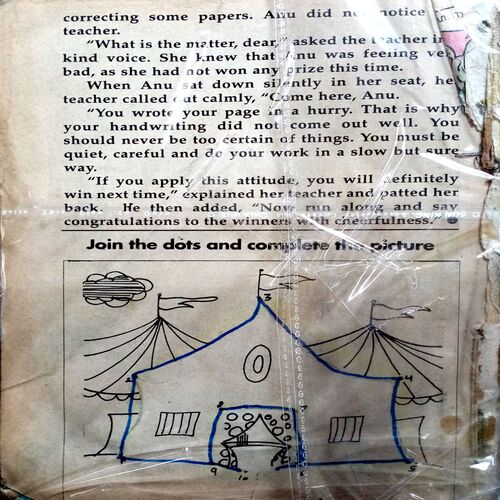 correcting some papers. Anu did not notice
teacher.
"What is the matter, dear," asked the teacher in
kind voice. She knew that Anu was feeling very
bad, as she had not won any prize this time.
When Anu sat down silently in her seat, he
teacher called out calmly, "Come here, Anu.
"You wrote your page in a hurry. That is why
your handwriting did not come out well. You
should never be too certain of things. You must be
quiet, careful and do your work in a slow but sure
way.
"If you apply this attitude, you will definitely
win next time," explained her teacher and patted her
back. He then added, "Now run along and say
congratulations to the winners with cheerfulness."
Join the dots and complete the picture
3
4
9
10
5